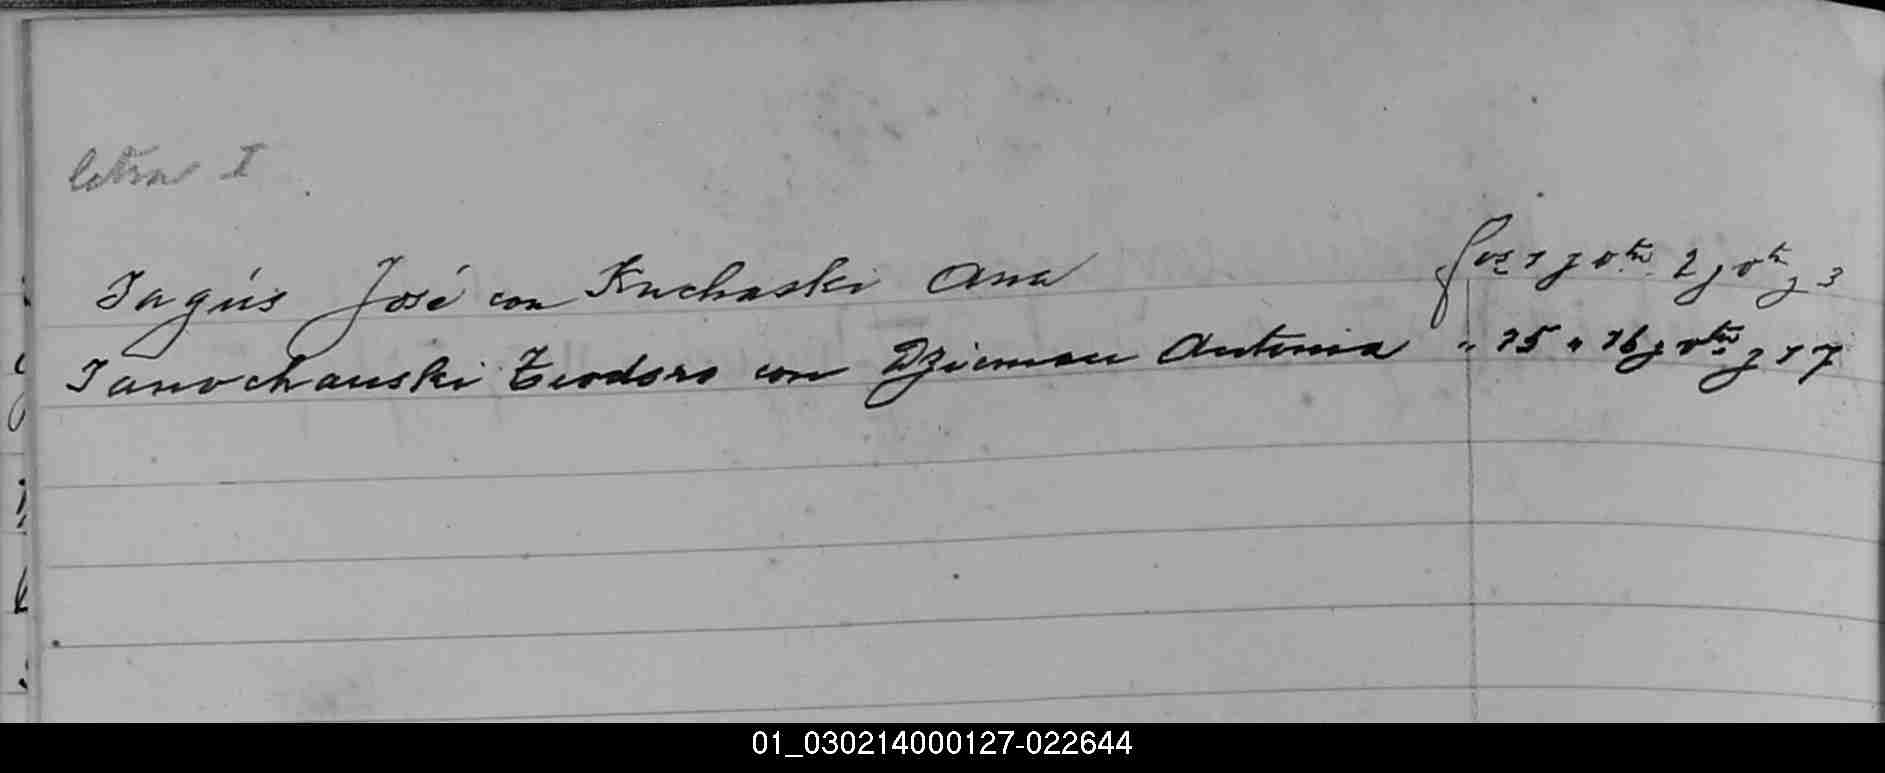 letra I
Iagús José con Kuchaski Ana fos 1 y vto 2 y vto y 3
Ianochauski Teodoro con Dzieman Antonia " 15 " 16 y vto y 17
01_030214000127-022644